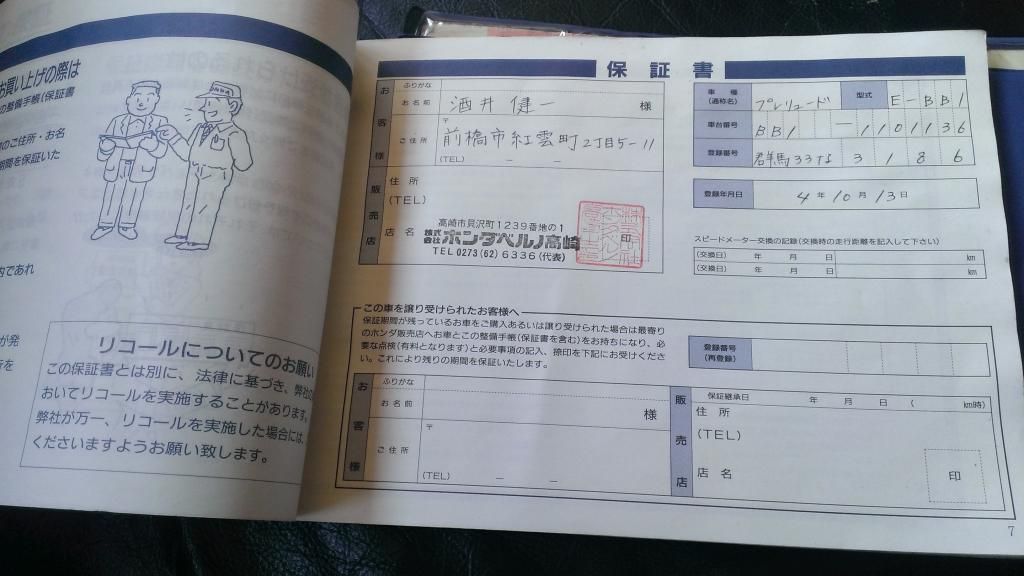 お買い上げの際は
の整備手帳(保証書
のご住所・お名
期間を保証いた
内であれ
が発
リコールについてのお願い
この保証書とは別に、法律に基づき、弊社
おいてリコールを実施することがあります。
弊社が万一、リコールを実施した場合には、
くださいますようお願い致します。
保証書
お客様
ふりがな
お名前 酒井健一 様
〒
ご住所 前橋市紅雲町2丁目5-11
(TEL) － －
販売店
住所
(TEL)
高崎市貝沢町1239番地の1
店名 株式会社ホンダベルノ高崎 印
TEL 0273(62)6336(代表)
車種(通称名) プレリュード 型式 E-BB1
車台番号 BB1-1101136
登録番号 群馬33な3186
登録年月日 4年10月13日
スピードメーター交換の記録(交換時の走行距離を記入して下さい)
(交換日) 年 月 日 km
(交換日) 年 月 日 km
この車を譲り受けられたお客様へ
保証期間が残っているお車をご購入あるいは譲り受けられた場合は最寄り
のホンダ販売店へお車とこの整備手帳(保証書を含む)をお持ちになり、必
要な点検(有料となります)と必要事項の記入、捺印を下記にお受けくださ
い。これにより残りの期間を保証いたします。
登録番号(再登録)
お客様
ふりがな
お名前 様
〒
ご住所
(TEL) － －
販売店
保証継承日 年 月 日 ( km時)
住所
(TEL)
店名 印
7